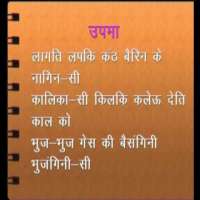 उपमा
लागति लपकि कठ बैरिन के
नागिन–सी
कालिका–सी किलकि कलेऊ देति
काल को
भुज–भुज गेस की बैसंगिनी
भुजंगिनी–सी